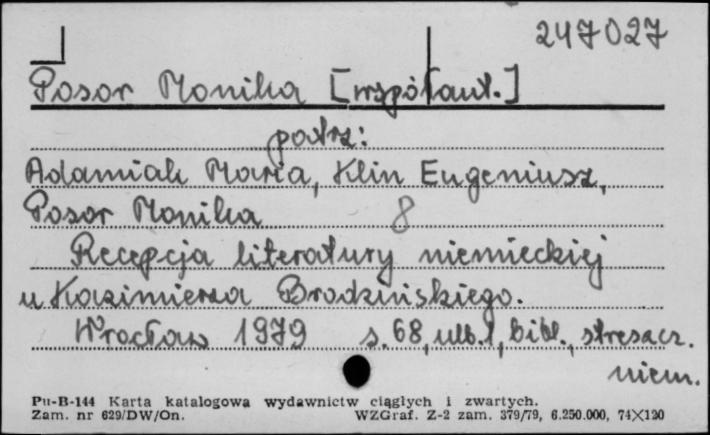 247027
Posor Monika [współaut.]
patrz:
Adamiak Maria, Klin Eugeniusz,
Posor Monika 8
Recepcja literatury niemieckiej
u Kazimierza Brodzińskiego.
Wrocław 1979 s. 68, ulb. 1, bibl., streszcz.
niem.
Pu-B-144 Karta katalogowa wydawnictw ciągłych i zwartych.
Zam. nr 629/DW/On. WZGraf. Z-2 zam. 379/79, 6.250.000, 74X120